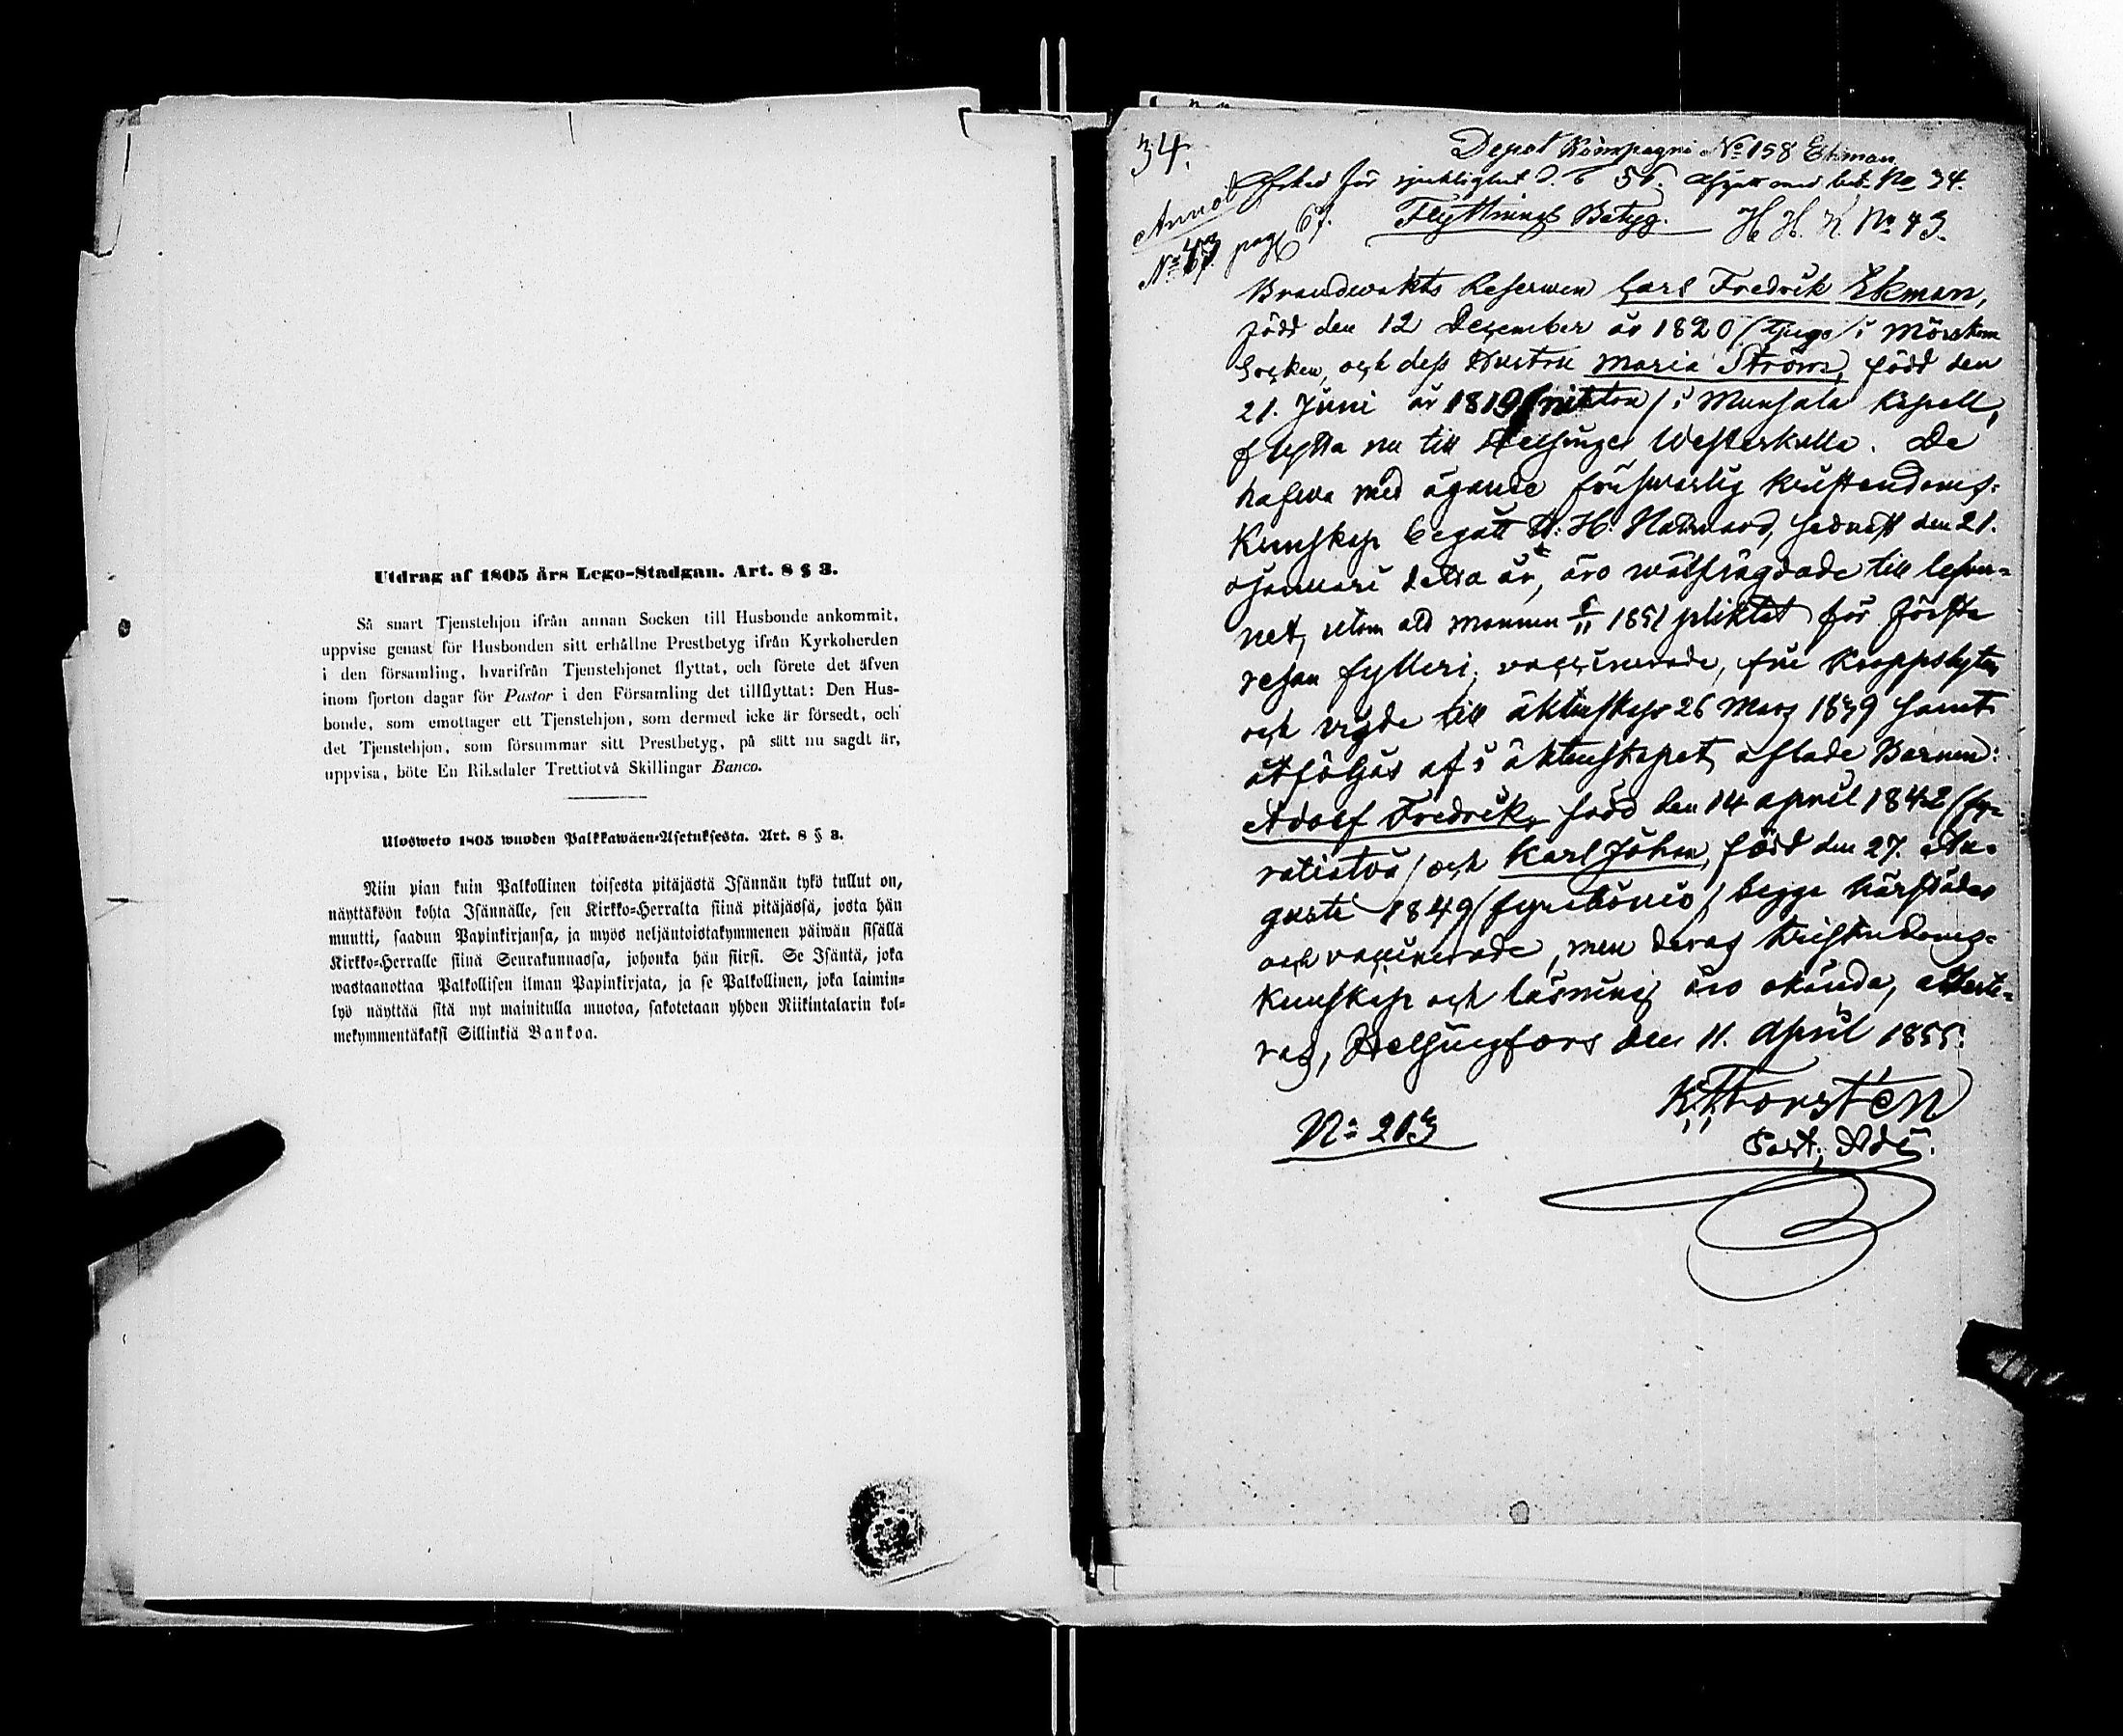 Utdrag af 1805 års Lego-Stadgan. Art. 8 § 3.
Så snart Tjenstehjon ifrån annan Socken till Husbonde ankommit,
uppvise genast för Husbonden sitt erhållne Prestbetyg ifrån Kyrkoherden
i den församling, hvarifrån Tjenstehjonet flyttat, och förete det äfven
inom fjorton dagar för Pastor i den Församling det tillflyttat: Den Hus-
bonde, som emottager ett Tjenstehjon, som dermed icke är försedt, och
det Tjenstehjon, som försummar sitt Prestbetyg, på sätt nu sagdt är,
uppvisa, böte En Riksdaler Trettiotvå Skillingar Banco.
Ulosweto 1805 wuoden Palkkawäen-Asetuksesta. Art. 8 § 3.
Niin pian kuin Palkollinen toisesta pitäjästä Isännän tykö tullut on,
näyttäköön kohta Isännälle, sen Kirkko-Herralta siinä pitäjässä, josta hän
muutti, saadun Papinkirjansa, ja myös neljäntoistakymmenen päiwän sisällä
Kirkko-Herralle siinä Seurakunnassa, johonka hän siirsi. Se Isäntä, joka
wastaanottaa Palkollisen ilman Papinkirjata, ja se Palkollinen, joka laimin-
lyö näyttää sitä nyt mainitulla muotoa, sakotetaan yhden Riikintalarin kol-
mekymmentäkaksi Sillinkiä Bankoa.
34.
Depot Kompagni No 158 Ekman
för sjuklighet d. 6 56. med bet. No 34.
Annot
Flyttnings Betyg. H. H. K. No 43.
No 43 pag 67.
Brandwakts Reserwen Carl Fredrik Ekman,
född den 12 December år 1820 (tjugo) i Mörskom
Socken, och dess Hustru Maria Ström, född den
21. Juni år 1819 (nitton) i Munsala Kapell,
flytta nu till Helsinge Westerkulla. De
hafwa med ägande förswarlig kristendoms-
kunskap begått H. H. Nattward, sednast den 21.
Januari detta år, äro wälfrägdade till lefwer-
net, utom att mannen 6/11 1851 pliktat för första
resan fylleri; vaccinerade, fria kroppslyten
och vigde till äktenskap 26 Mars 1839 samt
åtföljas af i äktenskapet aflade Barnen:
Adolf Fredrik, född den 14 April 1842 (fy-
ratiotvå) och Karl Johan, född den 27. Au-
gusti 1849 (fyrationio) begge härstädes
och vaccinerade, men deras kristendoms-
kunskap och läsning äro okända, atteste-
ras, Helsingfors den 11. April 1855.
K. H. Forstén
Past. Adj.
No 213